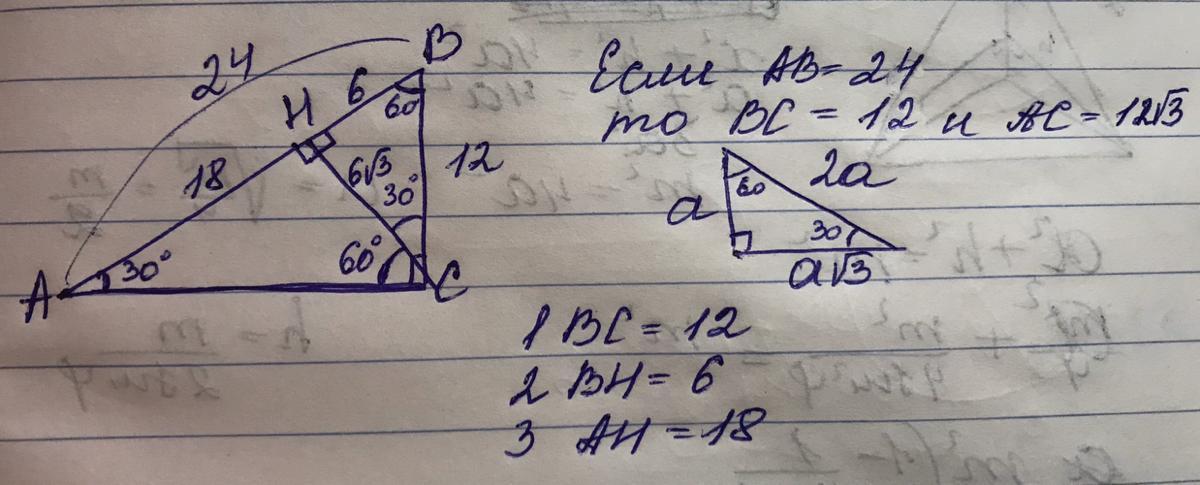 24
B
6
60
H
18
6√3
30°
12
A
30°
60°
C
Если AB = 24
то BC = 12 и AC = 12√3
60
2a
a
30
a√3
1 BC = 12
2 BH = 6
3 AH = 18